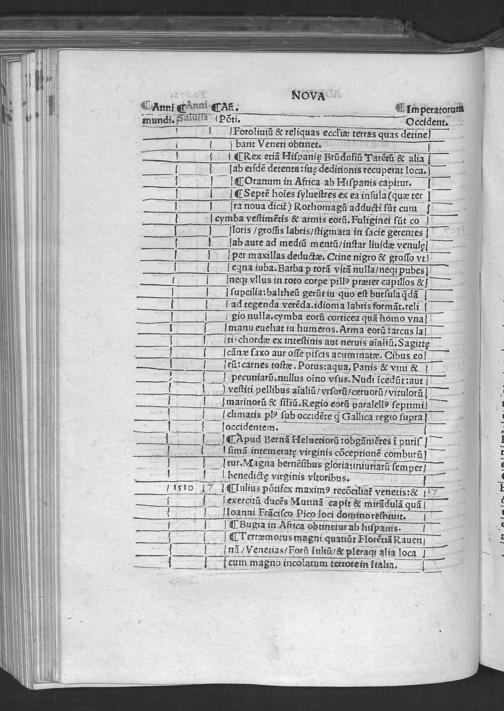 NOVA
¶Anni ¶Anni ¶Añ. ¶Imperatorum
mundi. Salutis Põti. Occident.
Foroliuiũ & reliquas eccliæ terras quas detine
bant Veneti obtinet.
¶Rex etiã Hispanię Brũdusiũ Tarẽtũ & alia
ab eisdẽ detenta: suę deditionis recuperat loca.
¶Oranum in Africa ab Hispanis capitur.
¶Septẽ hoies syluestres ex ea insula (quæ ter
ra noua dicit̃) Rothomagũ adducti sũt cum
cymba vestimẽtis & armis eorũ. Fuliginei sũt co
loris / grossis labris / stigmata in facie gerentes
ab aure ad mediũ mentũ / instar liuidæ venulę
per maxillas deductæ. Crine nigro & grosso vt
eqna iuba. Barba p totã vitã nulla / neqȝ pubes
neqȝ vllus in toto corpe pillꝰ præter capillos &
supcilia: baltheũ gerũt in quo est bursula q̃dã
ad tegenda verẽda. idioma labris formãt. reli
gio nulla. cymba eorũ corticea quã homo vna
manu euehat in humeros. Arma eorũ: arcus la
ti: chordæ ex intestinis aut neruis aialiũ. Sagittę
cãnæ saxo aur osse piscis acuminatæ. Cibus eo
rũ: carnes tostæ. Potus: aqua. Panis & vini &
pecuniarũ. nullus oino vsus. Nudi icedũt: aut
vestiti pellibus aialiũ / vrsorũ / ceruorũ / vitulorũ
marinorũ & siliũ. Regio eorũ parallelꝰ septimi
climatis plꝰ sub occidẽte q̃ Gallica regio supra
occidentem.
¶Apud Bernã Heluetiorũ: obgũniẽres ĩ puris
simã intemeratę virginis cõceptionẽ comburũ
tur. Magna bernẽsibus gloria: iniuriarũ semper
benedictę virginis vltoribus.
1510 7 ¶Iulius põtifex maximꝰ recõciliat̃ venetis: & 17
exercitũ ducẽs Mutinã capit & mirãdulã quã
Ioanni Frãcisco Pico loci domino restituit.
¶Bugia in Africa obtinetur ab hispanis.
¶Terræmotus magni quatiũt Florẽtiã Rauen
nã / Venetias / Forũ Iuliũ / & pleraqȝ alia loca
cum magno incolatum terrore in Italia.